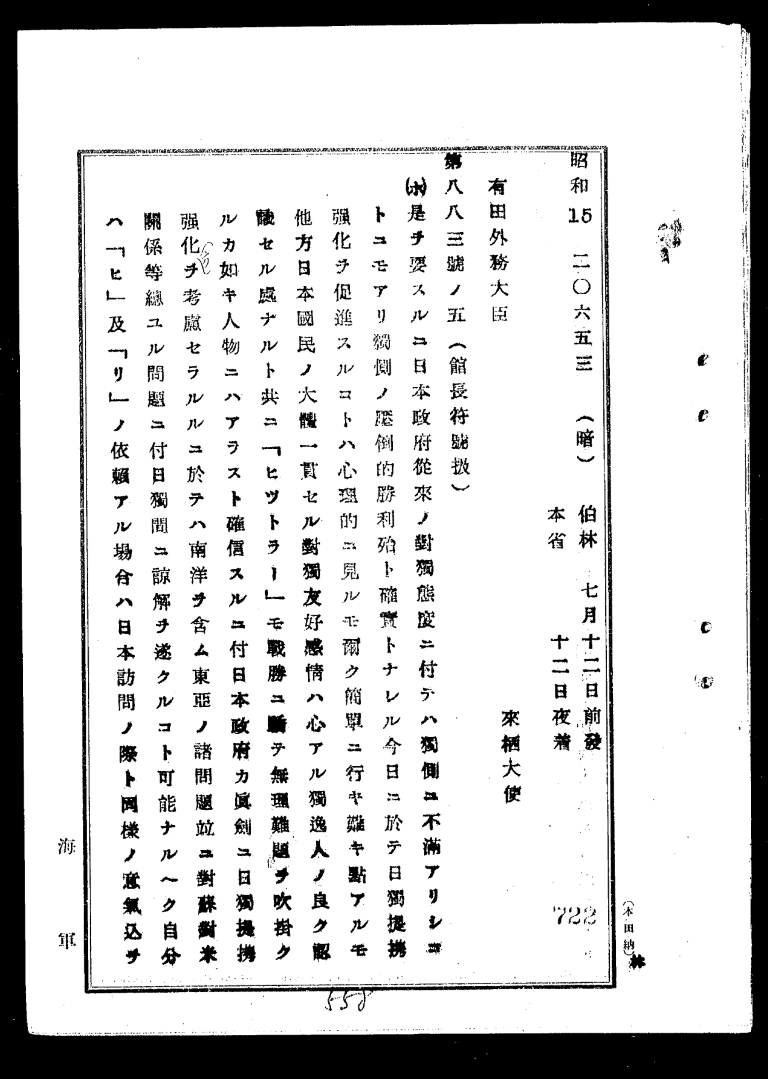 昭和15 二〇六五三 (暗) 伯林 七月十二日前發
本省 十二日夜着
有田外務大臣 來栖大使
第八八三號ノ五(館長符號扱)
(ホ)是ヲ要スルニ日本政府從來ノ對獨態度ニ付テハ獨側ニ不滿アリシコ
トニモアリ獨側ノ壓倒的勝利殆ト確實トナレル今日ニ於テ日獨提携
强化ヲ促進スルコトハ心理的ニ見ルモ爾ク簡單ニ行キ難キ點アルモ
他方日本國民ノ大體一貫セル對獨友好感情ハ心アル獨逸人ノ良ク認
識セル處ナルト共ニ「ヒツトラー」モ戰勝ニ驕テ無理難題ヲ吹掛ク
ルカ如キ人物ニハアラスト確信スルニ付日本政府カ眞劍ニ日獨提携
强化ヲ考慮セラルルニ於テハ南洋ヲ含ム東亞ノ諸問題竝ニ對蘇對米
關係等總ユル問題ニ付日獨間ニ諒解ヲ遂クルコト可能ナルヘク自分
ハ「ヒ」及「リ」ノ依賴アル場合ハ日本訪問ノ際ト同樣ノ意氣込ヲ
海軍
722
(本田納)
558